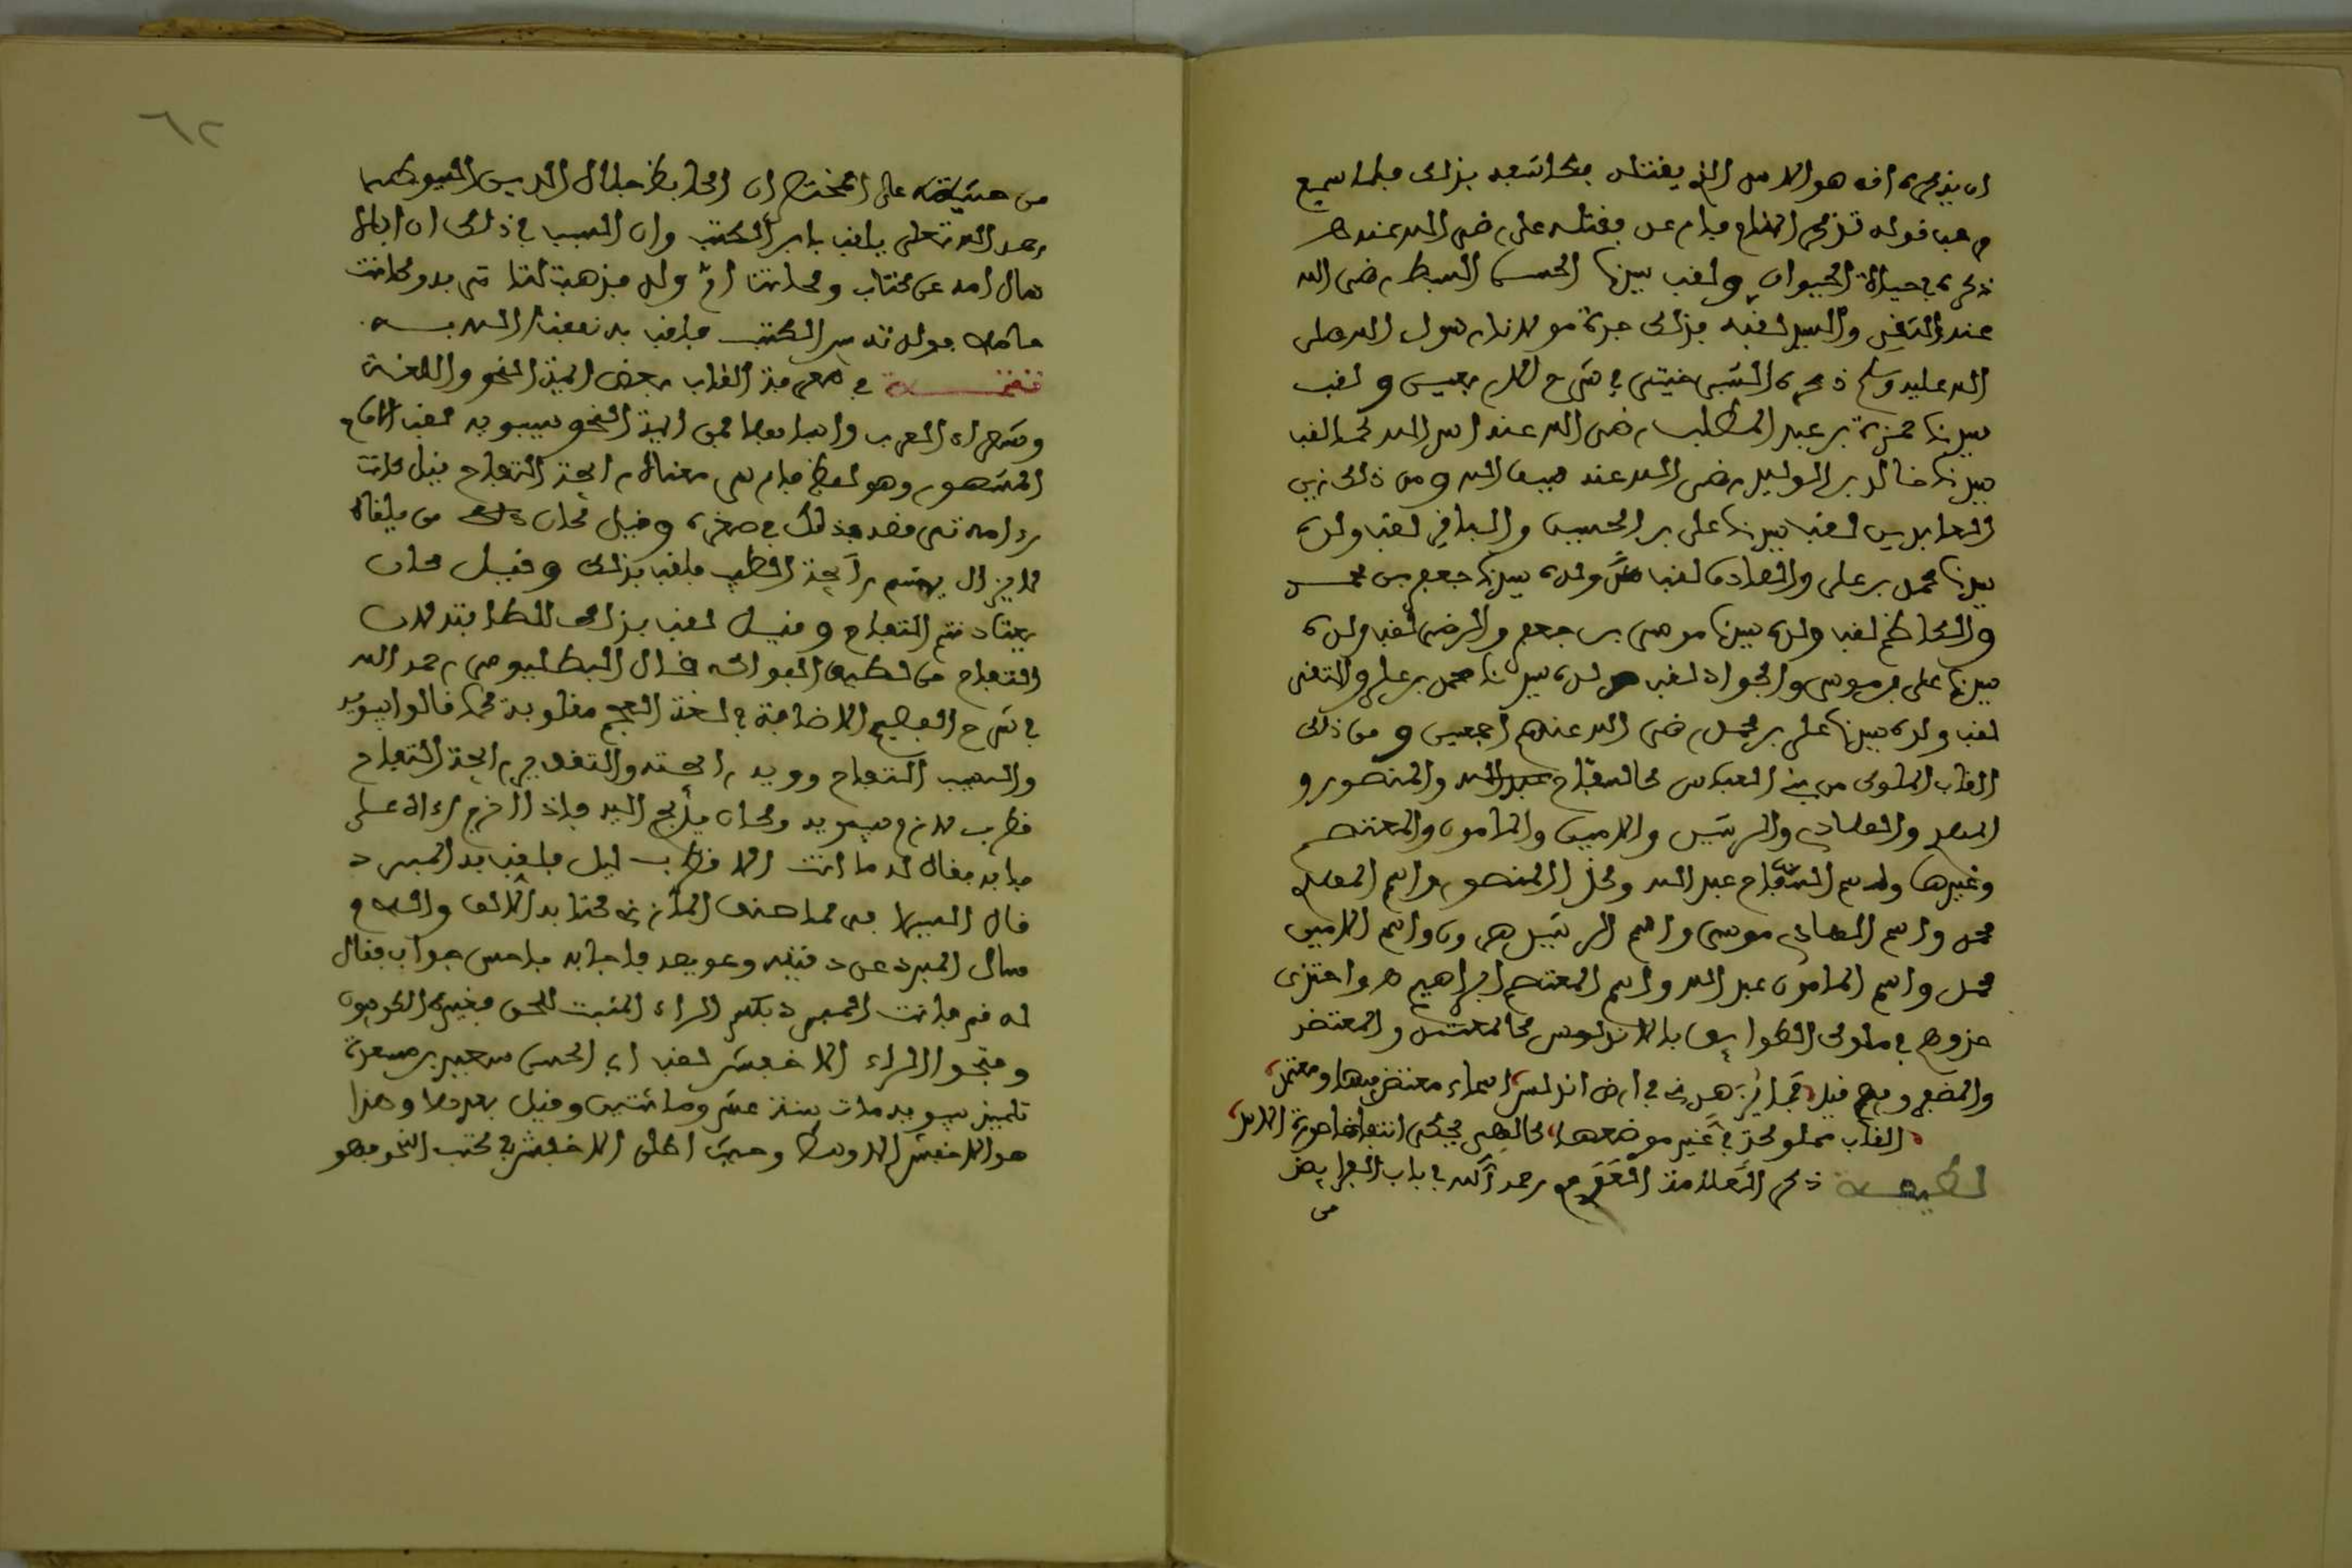 ان يذكره انه هو الاسد الذي يقتله مكاشفة بذلك فلما سمع
مرحب قوله تذكر المنام فارعد فقتله علي رضي الله عنه هـ
ذكره في حياة الحيوان ولقب سيدنا الحسن السبط رضي الله
عنه التقي والسيد لقبه بذلك جده مولانا رسول الله صلى
الله عليه وسلم ذكره الشبرخيتي في شرح الاربعين ولقب
سيدنا حمزة بن عبد المطلب رضي الله عنه اسد الله كما لقب
سيدنا خالد بن الوليد رضي الله عنه سيف الله ومن ذلك زين
العابدين لقب سيدنا علي بن الحسين والباقر لقب ولده
سيدنا محمد بن علي والصادق لقب ولده سيدنا جعفر بن محمد
والكاظم لقب ولده سيدنا موسى بن جعفر والرضى لقب ولده
سيدنا علي بن موسى والجواد لقب ولده سيدنا محمد بن علي والتقى
لقب ولده سيدنا علي بن محمد رضي الله عنهم اجمعين ومن ذلك
القاب الملوك من بني العباس كالسفاح عبد الله والمنصور و
المهدي والهادي والرشيد والامين والمامون والمعتصم
وغيرها واسم السفاح عبد الله وكذا المنصور واسم المهدي
محمد واسم الهادي موسى واسم الرشيد هرون واسم الامين
محمد واسم المامون عبد الله واسم المعتصم ابراهيم هـ واحتذى
حذوهم في ملوك الطوايف بالاندلس كالمعتمد والمعتضد
والمضفر وفيهم قيل مما يزهدني في ارض اندلس اسماء معتضد فيها ومعتمد
القاب مملوكة في غير موضعها كالهر يحكي انتفاخا صورة الاسد
لطيفـــة ذكر العلامة العدوي رحمه الله في باب الفرايض
من
٦٢
من حشيته على المختصر ان الحافظ جلال الدين السيوطي
رحمه الله تعلى يلقب بابن الكتب وان السبب في ذلك ان اباه
سال امه عن كتاب وكانت ام ولد فذهبت لتاتيه به وكانت
حاملا فولدته بين الكتب فلقب به نفعنا الله بـــه
تتمـــة في معرفة القاب بعض ايمة النحو واللغة
وشعراء العرب وادبايها فمن ايمة النحو سيبويه لقب الامام
المشهور وهو لفظ فارسي معناه رايحة التفاح قيل كانت
امه ترقصه بذلك في صغره وقيل كان من يلقاه
لا يزال يشم رايحة الطيب فلقب بذلك وقيل كان
يعتاد شم التفاح وقيل لقب بذلك للطافته لان
التفاح من لطيف الفواكه قال البطليوسي رحمه الله
في شرح الفصيح الاضافة في لغة العجم مقلوبة كما قالوا سيبويه
والسيب التفاح وويه رايحته والتقدير رايحة التفاح
قطرب لازم سيبويه وكان يدلج اليه فاذا خرج رءاه على
بابه فقال له ما انت الا قطرب ليل فلقب به المبرد
قال السيرافي لما صنف المازني كتابه الالف واللام
سال المبرد عن دقيقه وعويصه فاجابه باحسن جواب فقال
له قم فانت المبرد بكسر الراء المثبت للحق فغيره الكوفيون
وفتحوا الراء الاخفش لقب ابي الحسن سعيد بن مسعدة
تلميذ سيبويه مات سنة عشر ومائتين وقيل بعدها وهذا
هو الاخفش الاوسط وحيث اطلق الاخفش في كتب النحو فهو